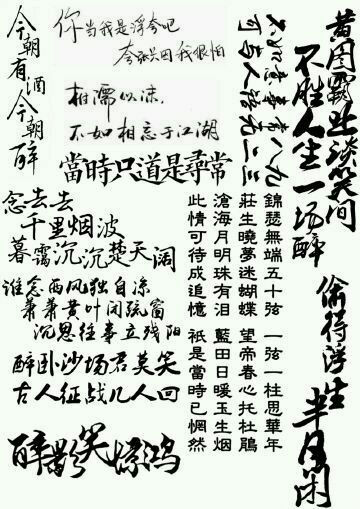 今朝有酒今朝醉
你当我是浮夸吧
夸张只因我很怕
相濡以沫
不如相忘于江湖
當時只道是尋常
不如意事常八九
可与人语无二三
黄图霸业谈笑间
不胜人生一场醉
偷得浮生
半日闲
念去去
千里烟波
暮霭沉沉楚天阔
谁念西风独自凉
萧萧黄叶闭疏窗
沉思往事立残阳
醉卧沙场君莫笑
古人征战几人回
醉影笑惊鸿
錦瑟無端五十弦 一弦一柱思華年
莊生曉夢迷蝴蝶 望帝春心托杜鵑
滄海月明珠有泪 藍田日暖玉生烟
此情可待成追憶 衹是當時已惘然